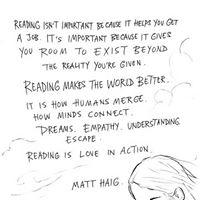 READING ISN'T IMPORTANT BECAUSE IT HELPS YOU GET
A JOB. IT'S IMPORTANT BECAUSE IT GIVES
YOU ROOM TO EXIST BEYOND
THE REALITY YOU'RE GIVEN.
READING MAKES THE WORLD BETTER.
IT IS HOW HUMANS MERGE.
HOW MINDS CONNECT.
DREAMS. EMPATHY. UNDERSTANDING.
ESCAPE.
READING IS LOVE IN ACTION.
MATT HAIG.